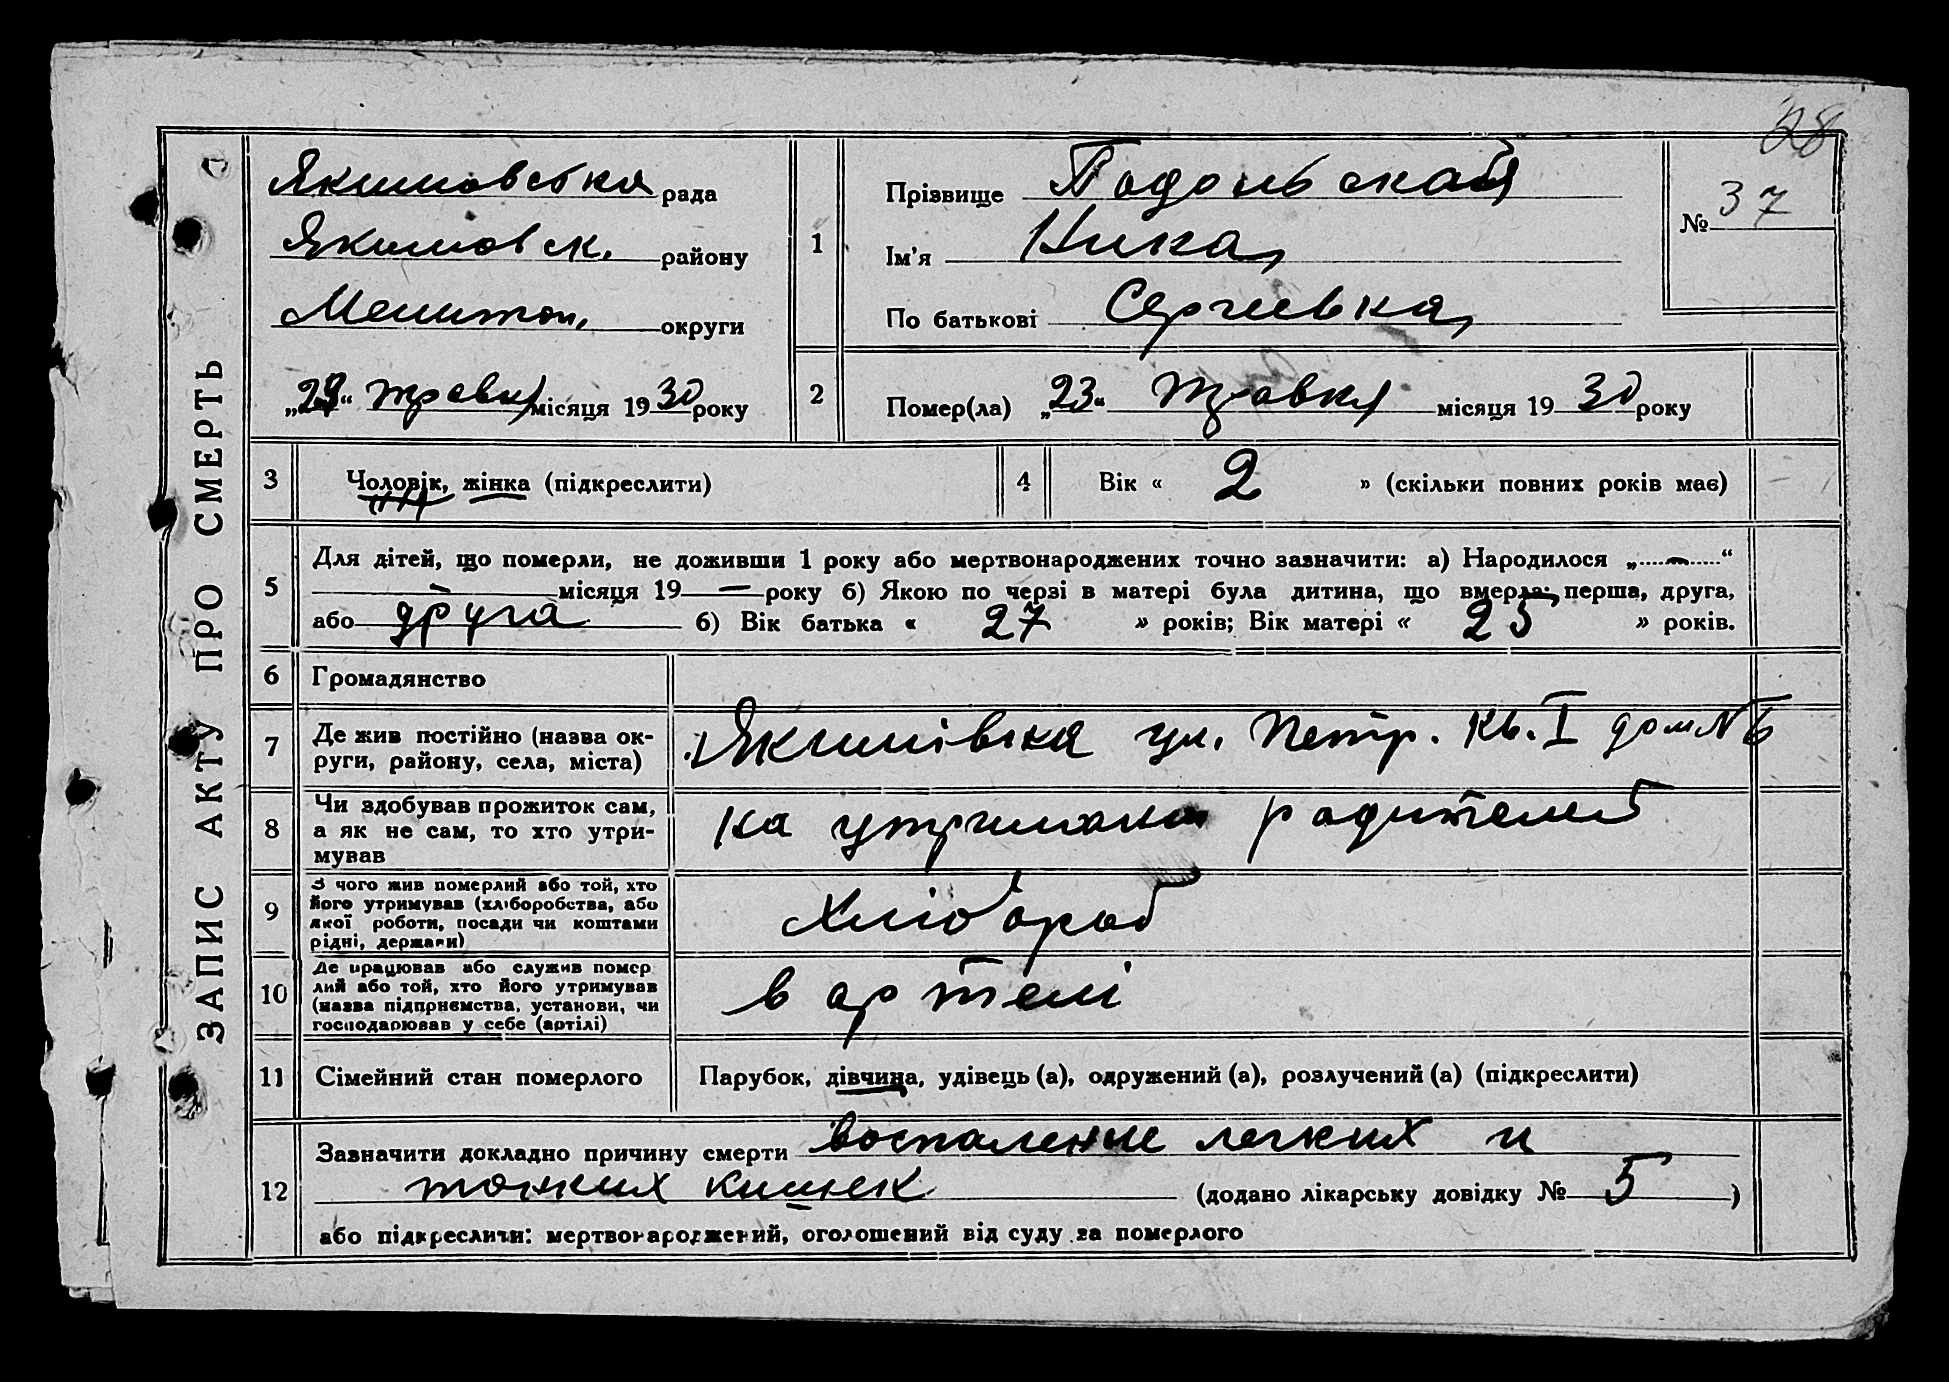 28
ЗАПИС АКТУ ПРО СМЕРТЬ
Якимовська рада
Якимовск. району
Мелитоп. округи
„29“ травня місяця 1930 року
1
Прізвище Подольская
Ім’я Нина
По батькові Сергеевна
№ 37
2
Помер(ла) „23“ Травня місяця 1930 року
3
Чоловік, жінка (підкреслити)
4
Вік « 2 » (скільки повних років має)
5
Для дітей, що померли, не доживши 1 року або мертвонароджених точно зазначити: а) Народилося „ — “
— місяця 19 — року б) Якою по черзі в матері була дитина, що вмерла: перша, друга,
або друга б) Вік батька « 27 » років; Вік матері « 25 » років.
6
Громадянство
7
Де жив постійно (назва ок-
руги, району, села, міста)
Якимівка ул. Петр. Кв. I дом № 6
8
Чи здобував прожиток сам,
а як не сам, то хто утри-
мував
на утримании родителей
9
З чого жив померлий або той, хто
його утримував (хліборобства, або
якої роботи, посади чи коштами
рідні, держави)
Хлібороб
10
Де працював або служив помер
лий або той, хто його утримував
(назва підприємства, установи, чи
господарював у себе (артілі)
в артелі
11
Сімейний стан померлого
Парубок, дівчина, удівець (а), одружений (а), розлучений (а) (підкреслити)
12
Зазначити докладно причину смерти воспаление легких и
тонких кишек (додано лікарську довідку № 5 )
або підкреслити: мертвонароджений, оголошений від суду за померлого